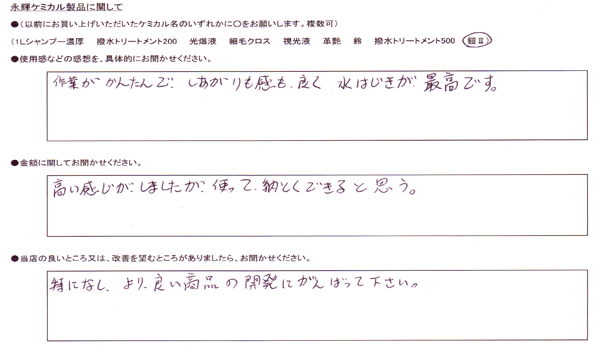 永輝ケミカル製品に関して
●（以前にお買い上げいただいたケミカル名のいずれかに○をお願いします。複数可）
（1Lシャンプー濃厚　撥水トリートメント200　光爆液　細毛クロス　視光液　革艶　鈴　撥水トリートメント500　鎧Ⅱ）
●使用感などの感想を、具体的にお聞かせください。
作業がかんたんで、しあがりも感も、良く　水はじきが、最高です。
●金額に関してお聞かせください。
高い感じがしましたが、使って、納とくできると思う。
●当店の良いところ又は、改善を望むところがありましたら、お聞かせください。
特になし、より、良い商品の開発にがんばって下さい。